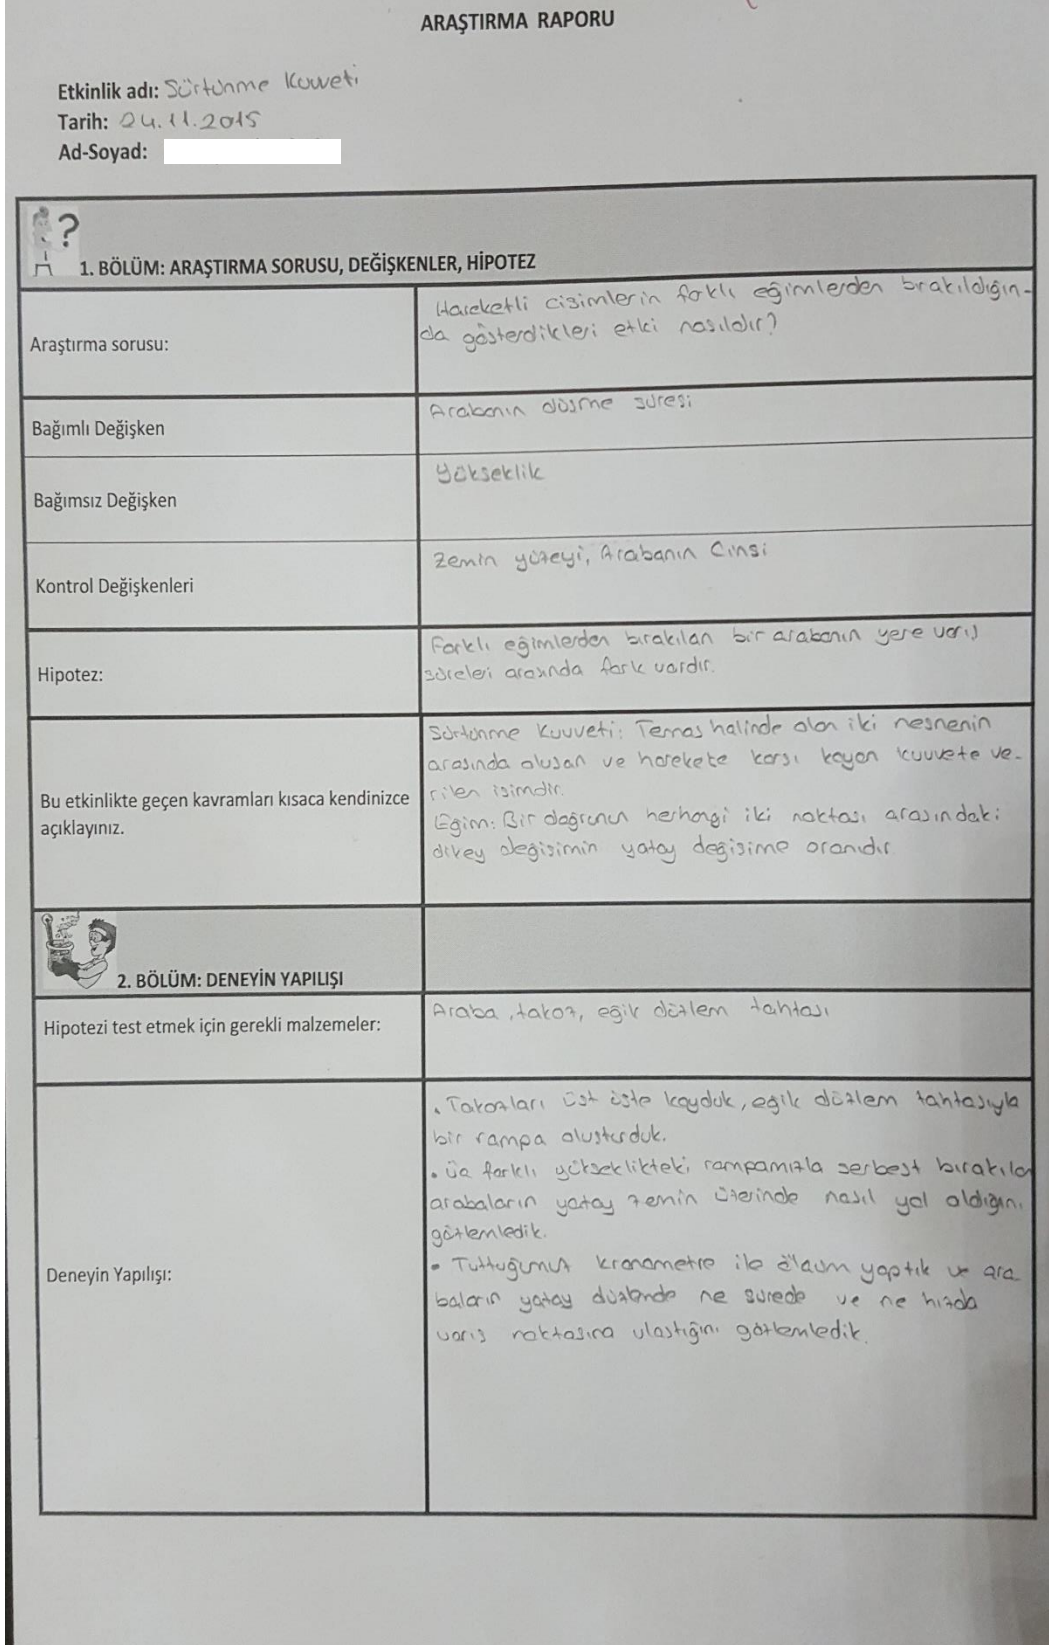 ARAŞTIRMA RAPORU
Etkinlik adı: Sürtünme Kuvveti
Tarih: 24.11.2015
Ad-Soyad:
?
1. BÖLÜM: ARAŞTIRMA SORUSU, DEĞİŞKENLER, HİPOTEZ
Araştırma sorusu:
Hareketli cisimlerin farklı eğimlerden bırakıldığın-
da gösterdikleri etki nasıldır?
Bağımlı Değişken
Arabanın düşme süresi
Bağımsız Değişken
Yükseklik
Kontrol Değişkenleri
Zemin yüzeyi, Arabanın Cinsi
Hipotez:
Farklı eğimlerden bırakılan bir arabanın yere varış
süreleri arasında fark vardır.
Bu etkinlikte geçen kavramları kısaca kendinizce
açıklayınız.
Sürtünme Kuvveti: Temas halinde olan iki nesnenin
arasında oluşan ve harekete karşı koyan kuvvete ve-
rilen isimdir.
Eğim: Bir doğrunun herhangi iki noktası arasındaki
dikey değişimin yatay değişime oranıdır.
2. BÖLÜM: DENEYİN YAPILIŞI
Hipotezi test etmek için gerekli malzemeler:
Araba, takoz, eğik düzlem tahtası
Deneyin Yapılışı:
. Takozları üst üste koyduk, eğik düzlem tahtasıyla
bir rampa oluşturduk.
. Üç farklı yükseklikteki rampamızla serbest bırakıla
arabaların yatay zemin üzerinde nasıl yol aldığını
gözlemledik.
• Tuttuğumuz kronometre ile ölçüm yaptık ve ara
baların yatay düzlemde ne sürede ve ne hızda
varış noktasına ulaştığını gözlemledik.